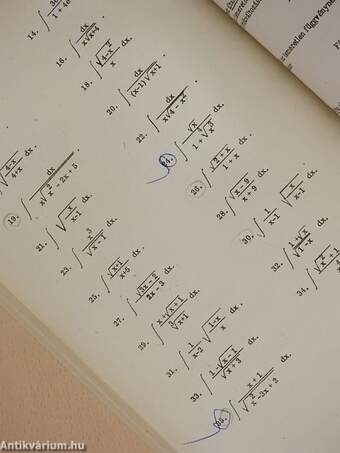 ismeretlen
14. ∫
16. ∫ dx / x√x+4 .
18. ∫ √4-x² / x dx.
20. ∫ dx / (x-1)√x+1 .
22. ∫ dx / x√4-x² .
24. ∫ √x / 1+√x³ dx.
26. ∫ √2-x / 1+x dx.
28. ∫ √x-9 / x+9 dx.
30. ∫ 1/x-1 √x/x-1 dx.
32. ∫ 1+√x / √1-x dx.
34. ∫
√4-x/4+x dx.
19. ∫ dx / x√x²-2x+5 .
21. ∫ √x/x-1 dx.
23. ∫ x³ / √x-1 dx.
25. ∫ √x+1 / x+5 dx.
27. ∫ √3x-2 / 2x-3 dx.
29. ∫ x+√x+1 / ∛x+1 dx.
31. ∫ 1/x-2 √1-x/x dx.
33. ∫ 1-√x-1 / √x+3 dx.
35. ∫ x+1 / √x²-3x+2 dx.
Antikvárium.hu